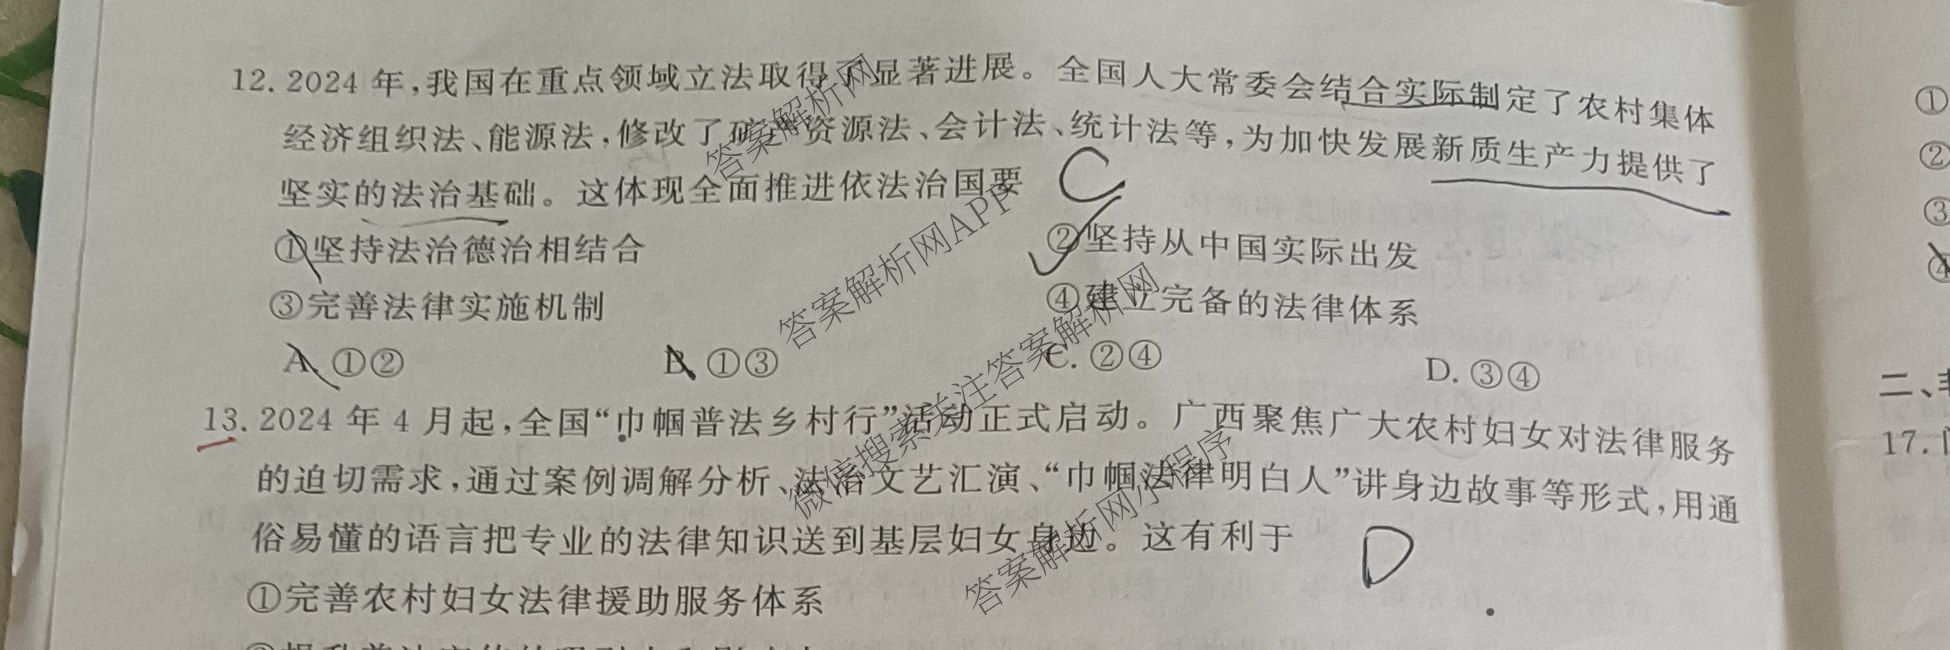 12. 2024年,我国在重点领域立法取得了显著进展。全国人大常委会结合实际制定了农村集体
经济组织法、能源法,修改了矿产资源法、会计法、统计法等,为加快发展新质生产力提供了
坚实的法治基础。这体现全面推进依法治国要 C
①坚持法治德治相结合 ②坚持从中国实际出发
③完善法律实施机制 ④建立完备的法律体系
A. ①② B. ①③ C. ②④ D. ③④
13. 2024年4月起,全国“巾帼普法乡村行”活动正式启动。广西聚焦广大农村妇女对法律服务
的迫切需求,通过案例调解分析、法治文艺汇演、“巾帼法律明白人”讲身边故事等形式,用通
俗易懂的语言把专业的法律知识送到基层妇女身边。这有利于 D
①完善农村妇女法律援助服务体系
①
②
③
④
二、
17.
答案解析网
答案解析网APP
微信搜索关注答案解析网
答案解析网小程序